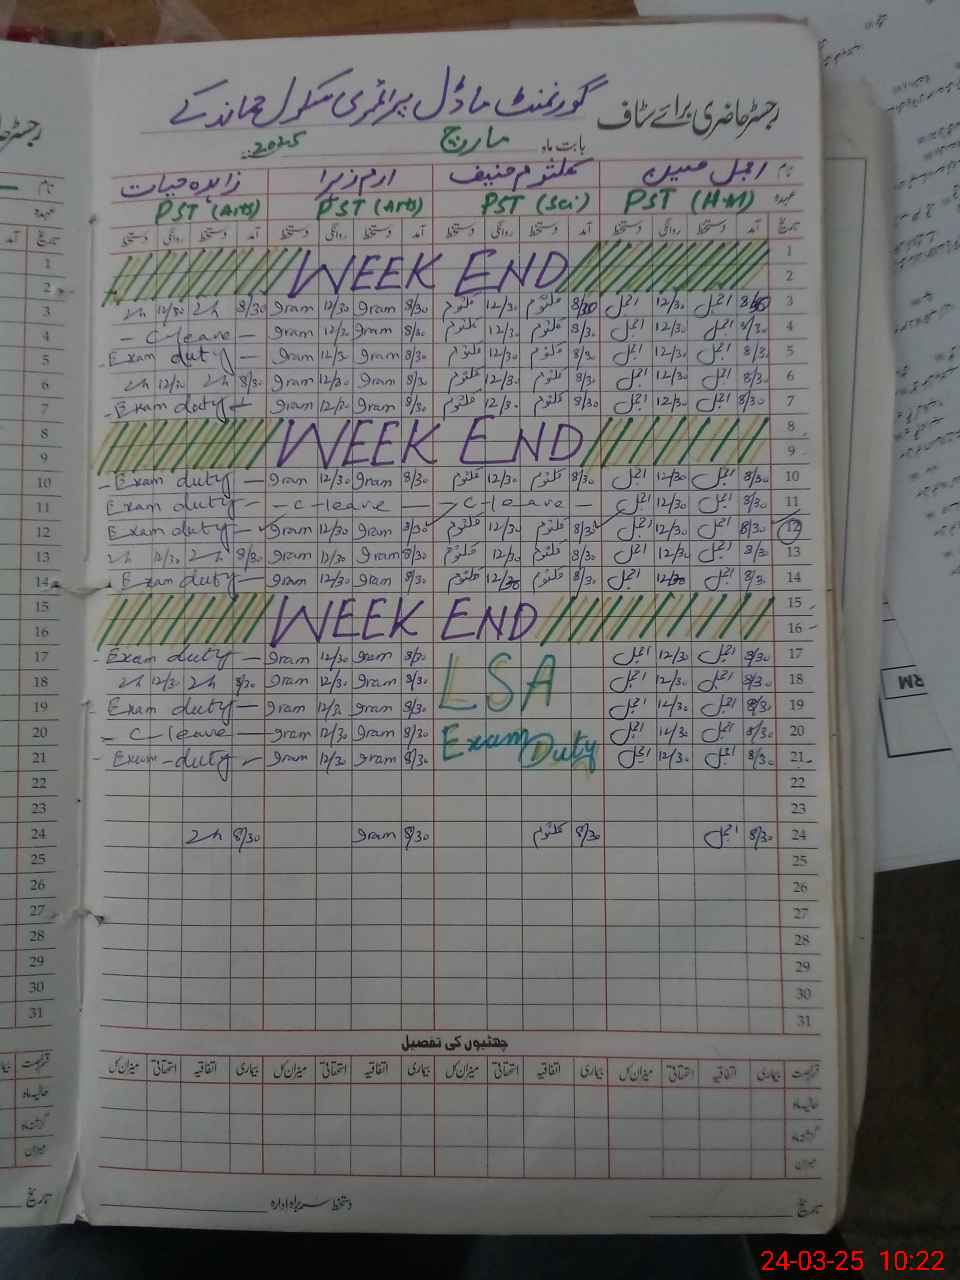 رجسٹر حاضری برائے سٹاف گورنمنٹ ماڈل پرائمری سکول
بابت ماہ مارچ 2025
نام اجمل حسین کلثوم حنیف ارم زہرا زاہدہ حیات
عہدہ PST (H.M) PST (Sci) PST (Arts) PST (Arts)
تاریخ آمد دستخط روانگی دستخط آمد دستخط روانگی دستخط آمد دستخط روانگی دستخط آمد دستخط روانگی دستخط
1 WEEK END
2
3 8/30 اجمل 12/30 اجمل 8/30 کلثوم 12/30 کلثوم 8/30 Iram 12/30 Iram 8/30 12/30
4 8/30 اجمل 12/30 اجمل 8/30 کلثوم 12/30 کلثوم 8/30 Iram 12/30 Iram - C-leave -
5 8/30 اجمل 12/30 اجمل 8/30 کلثوم 12/30 کلثوم 8/30 Iram 12/30 Iram - Exam duty -
6 8/30 اجمل 12/30 اجمل 8/30 کلثوم 12/30 کلثوم 8/30 Iram 12/30 Iram 8/30 12/30
7 8/30 اجمل 12/30 اجمل 8/30 کلثوم 12/30 کلثوم 8/30 Iram 12/30 Iram - Exam duty -
8 WEEK END
9
10 8/30 اجمل 12/30 اجمل 8/30 کلثوم 12/30 کلثوم 8/30 Iram 12/30 Iram - Exam duty -
11 8/30 اجمل 12/30 اجمل - C-leave - - C-leave - Exam duty -
12 8/30 اجمل 12/30 اجمل 8/30 کلثوم 12/30 کلثوم 8/30 Iram 12/30 Iram Exam duty -
13 8/30 اجمل 12/30 اجمل 8/30 کلثوم 12/30 کلثوم 8/30 Iram 12/30 Iram 8/30 12/30
14 8/30 اجمل 12/30 اجمل 8/30 کلثوم 12/30 کلثوم 8/30 Iram 12/30 Iram Exam duty -
15 WEEK END
16
17 8/30 اجمل 12/30 اجمل LSA 8/30 Iram 12/30 Iram - Exam duty -
18 8/30 اجمل 12/30 اجمل 8/30 Iram 12/30 Iram 8/30 12/30
19 8/30 اجمل 12/30 اجمل 8/30 Iram 12/30 Iram - Exam duty -
20 8/30 اجمل 12/30 اجمل Exam Duty 8/30 Iram 12/30 Iram - C-leave -
21 8/30 اجمل 12/30 اجمل 8/30 Iram 12/30 Iram - Exam-duty -
22
23
24 8/30 اجمل 8/30 کلثوم 8/30 Iram 8/30
25
26
27
28
29
30
31
چھٹیوں کی تفصیل
قسم رخصت بیماری اتفاقیہ استحقاقی میزان کل بیماری اتفاقیہ استحقاقی میزان کل بیماری اتفاقیہ استحقاقی میزان کل بیماری اتفاقیہ استحقاقی میزان کل
حالیہ ماہ
گزشتہ ماہ
میزان
تاریخ دستخط سربراہ ادارہ
RM
24-03-25 10:22